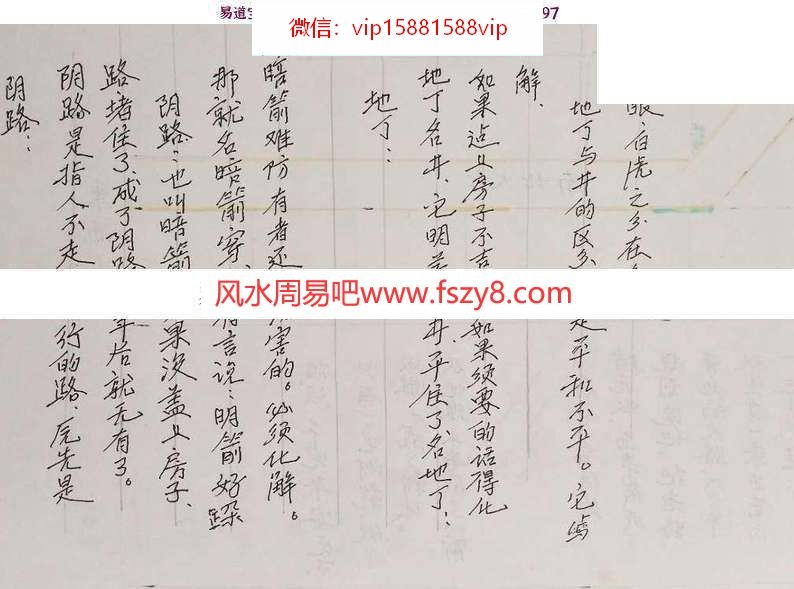 易道
97
微信：vip15881588vip
阴路：
阴路是指人不走 行的路、原先是
路堵住了，成了阴路 年后就无有了。
阴路：也叫暗箭 果没盖上房子、
那就名暗箭穿、 有言说：明箭好躲
暗箭难防有者还 害的。必须化解。
地丁：
地丁名井、它明 井平住了名地丁：
如果 上房子不吉 如果须要的话得化
解、
地丁与井的区分 是平和不平。它与
眼、白虎之分在
风水周易吧www.fszy8.com